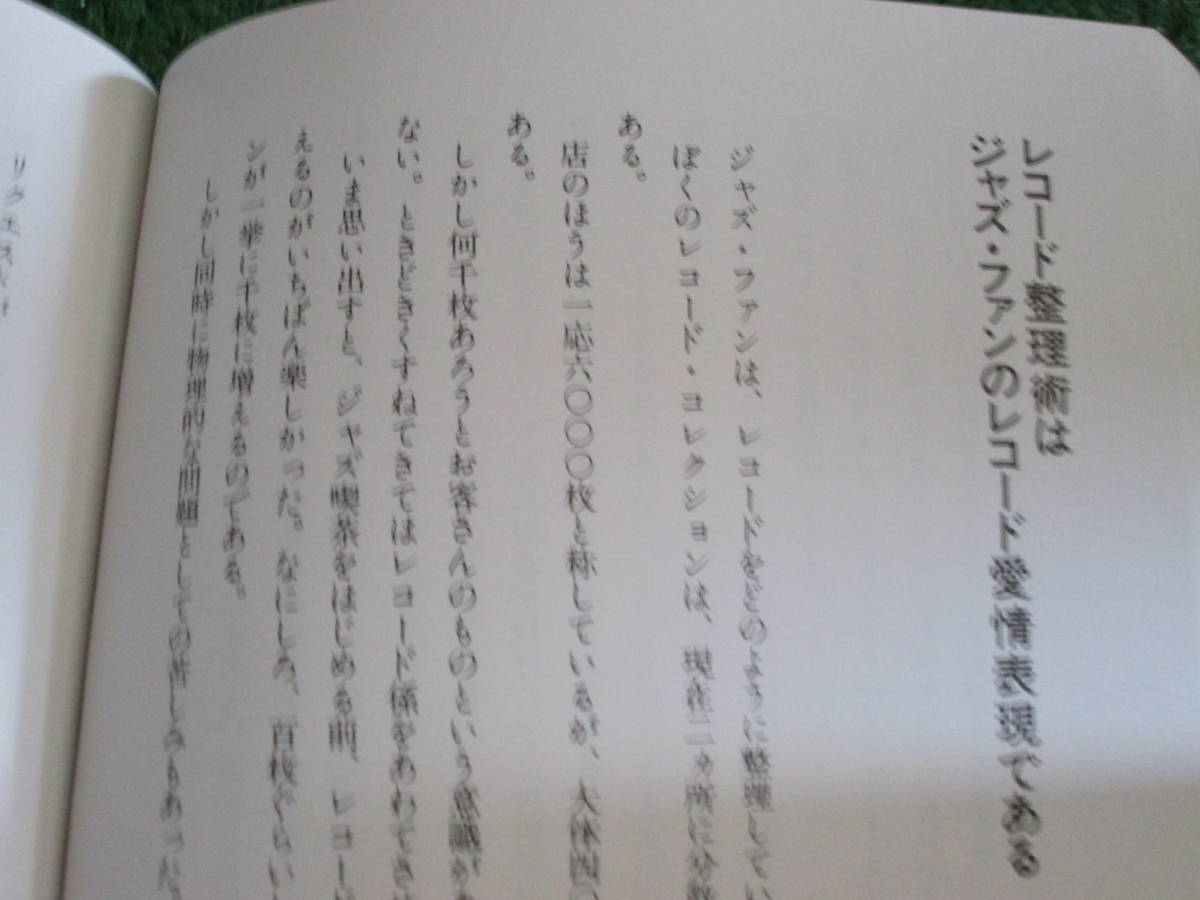 レコード整理術は
ジャズ・ファンのレコード愛情表現である
ジャズ・ファンは、レコードをどのように整理してい
ぼくのレコード・コレクションは、現在二ヵ所に分散
ある。
店のほうは一応六〇〇〇枚と称しているが、大体四〇
ある。
しかし何千枚あろうとお客さんのものという意識があ
ない。ときどきくすねてきてはレコード係をあわてさせ
いま思い出すと、ジャズ喫茶をはじめる前、レコー
えるのがいちばん楽しかった。なにしろ、百枚ぐらい
ンが一挙に千枚に増えるのである。
しかし同時に物理的な問題としての苦しみもあった。
リクエスト